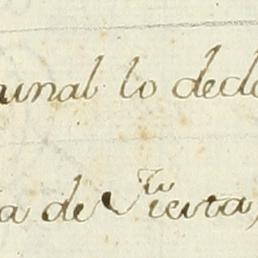 unal lo decla
a de Tierra,